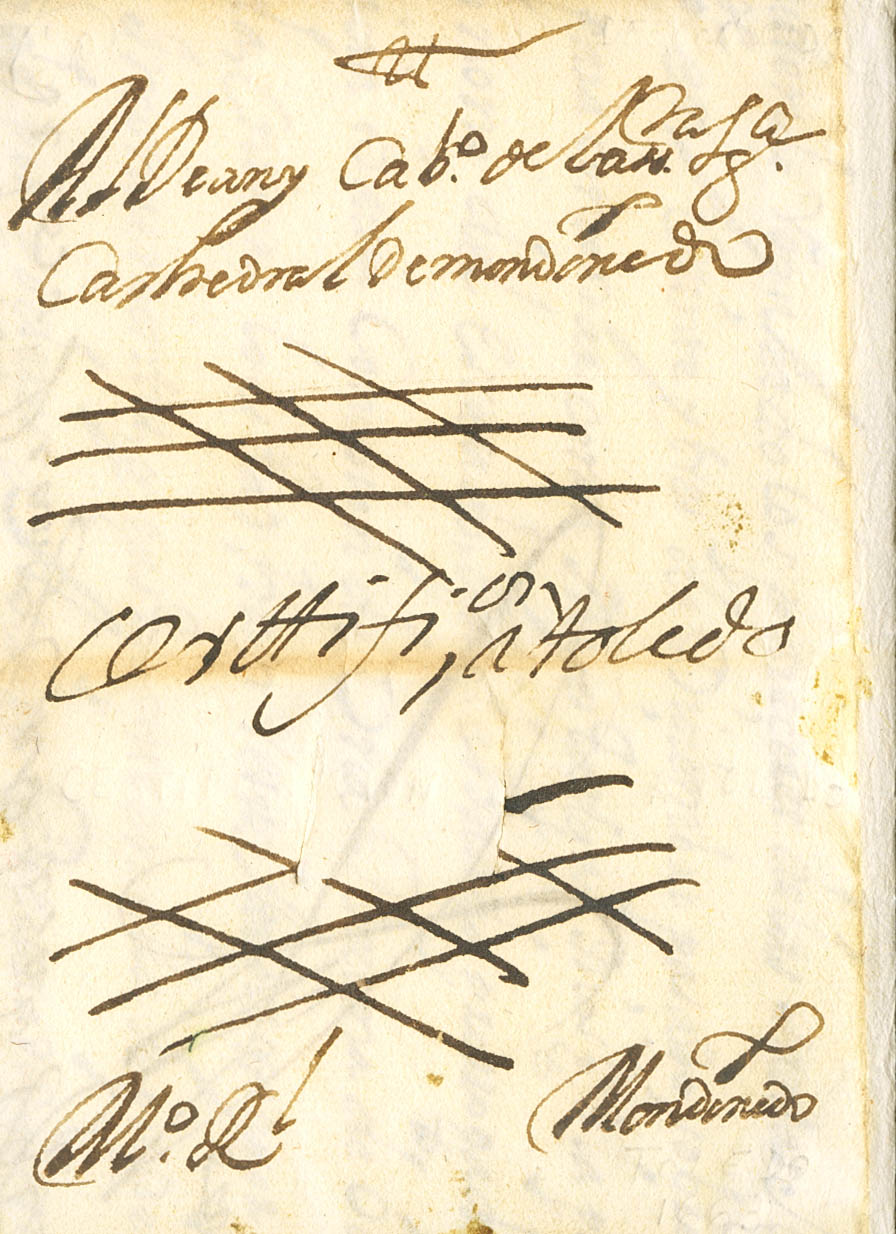 Al Dean y Cab.º de la S.ta Ig.ª
Cathedral de mondoñedo
Certtifi.on a toledo
M.º Rl
Mondoñedo